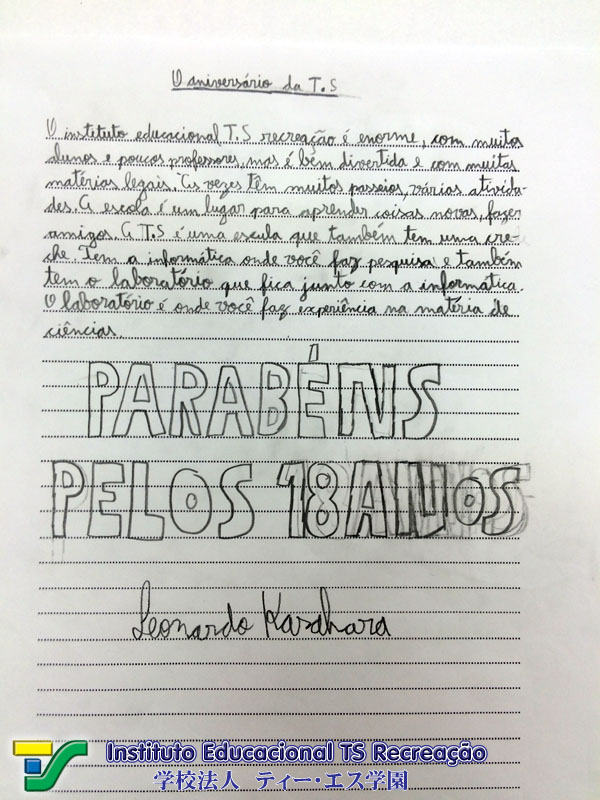 O aniversário da T.S
O instituto educacional T.S recreação é enorme, com muitos
alunos e poucos professores, mas é bem divertida e com muitas
matérias legais. As vezes têm muitos passeios, várias ativida-
des. A escola é um lugar para aprender coisas novas, fazer
amigos. A T.S é uma escula que também tem uma cre-
che. Tem a informática onde você faz pesquisa e também
tem o laboratório que fica junto com a informática.
O laboratório é onde você faz experiência na matéria de
ciências.
PARABÉNS
PELOS 18 ANOS
Leonardo Kasahara
TS Instituto Educacional TS Recreação
学校法人 ティー・エス学園